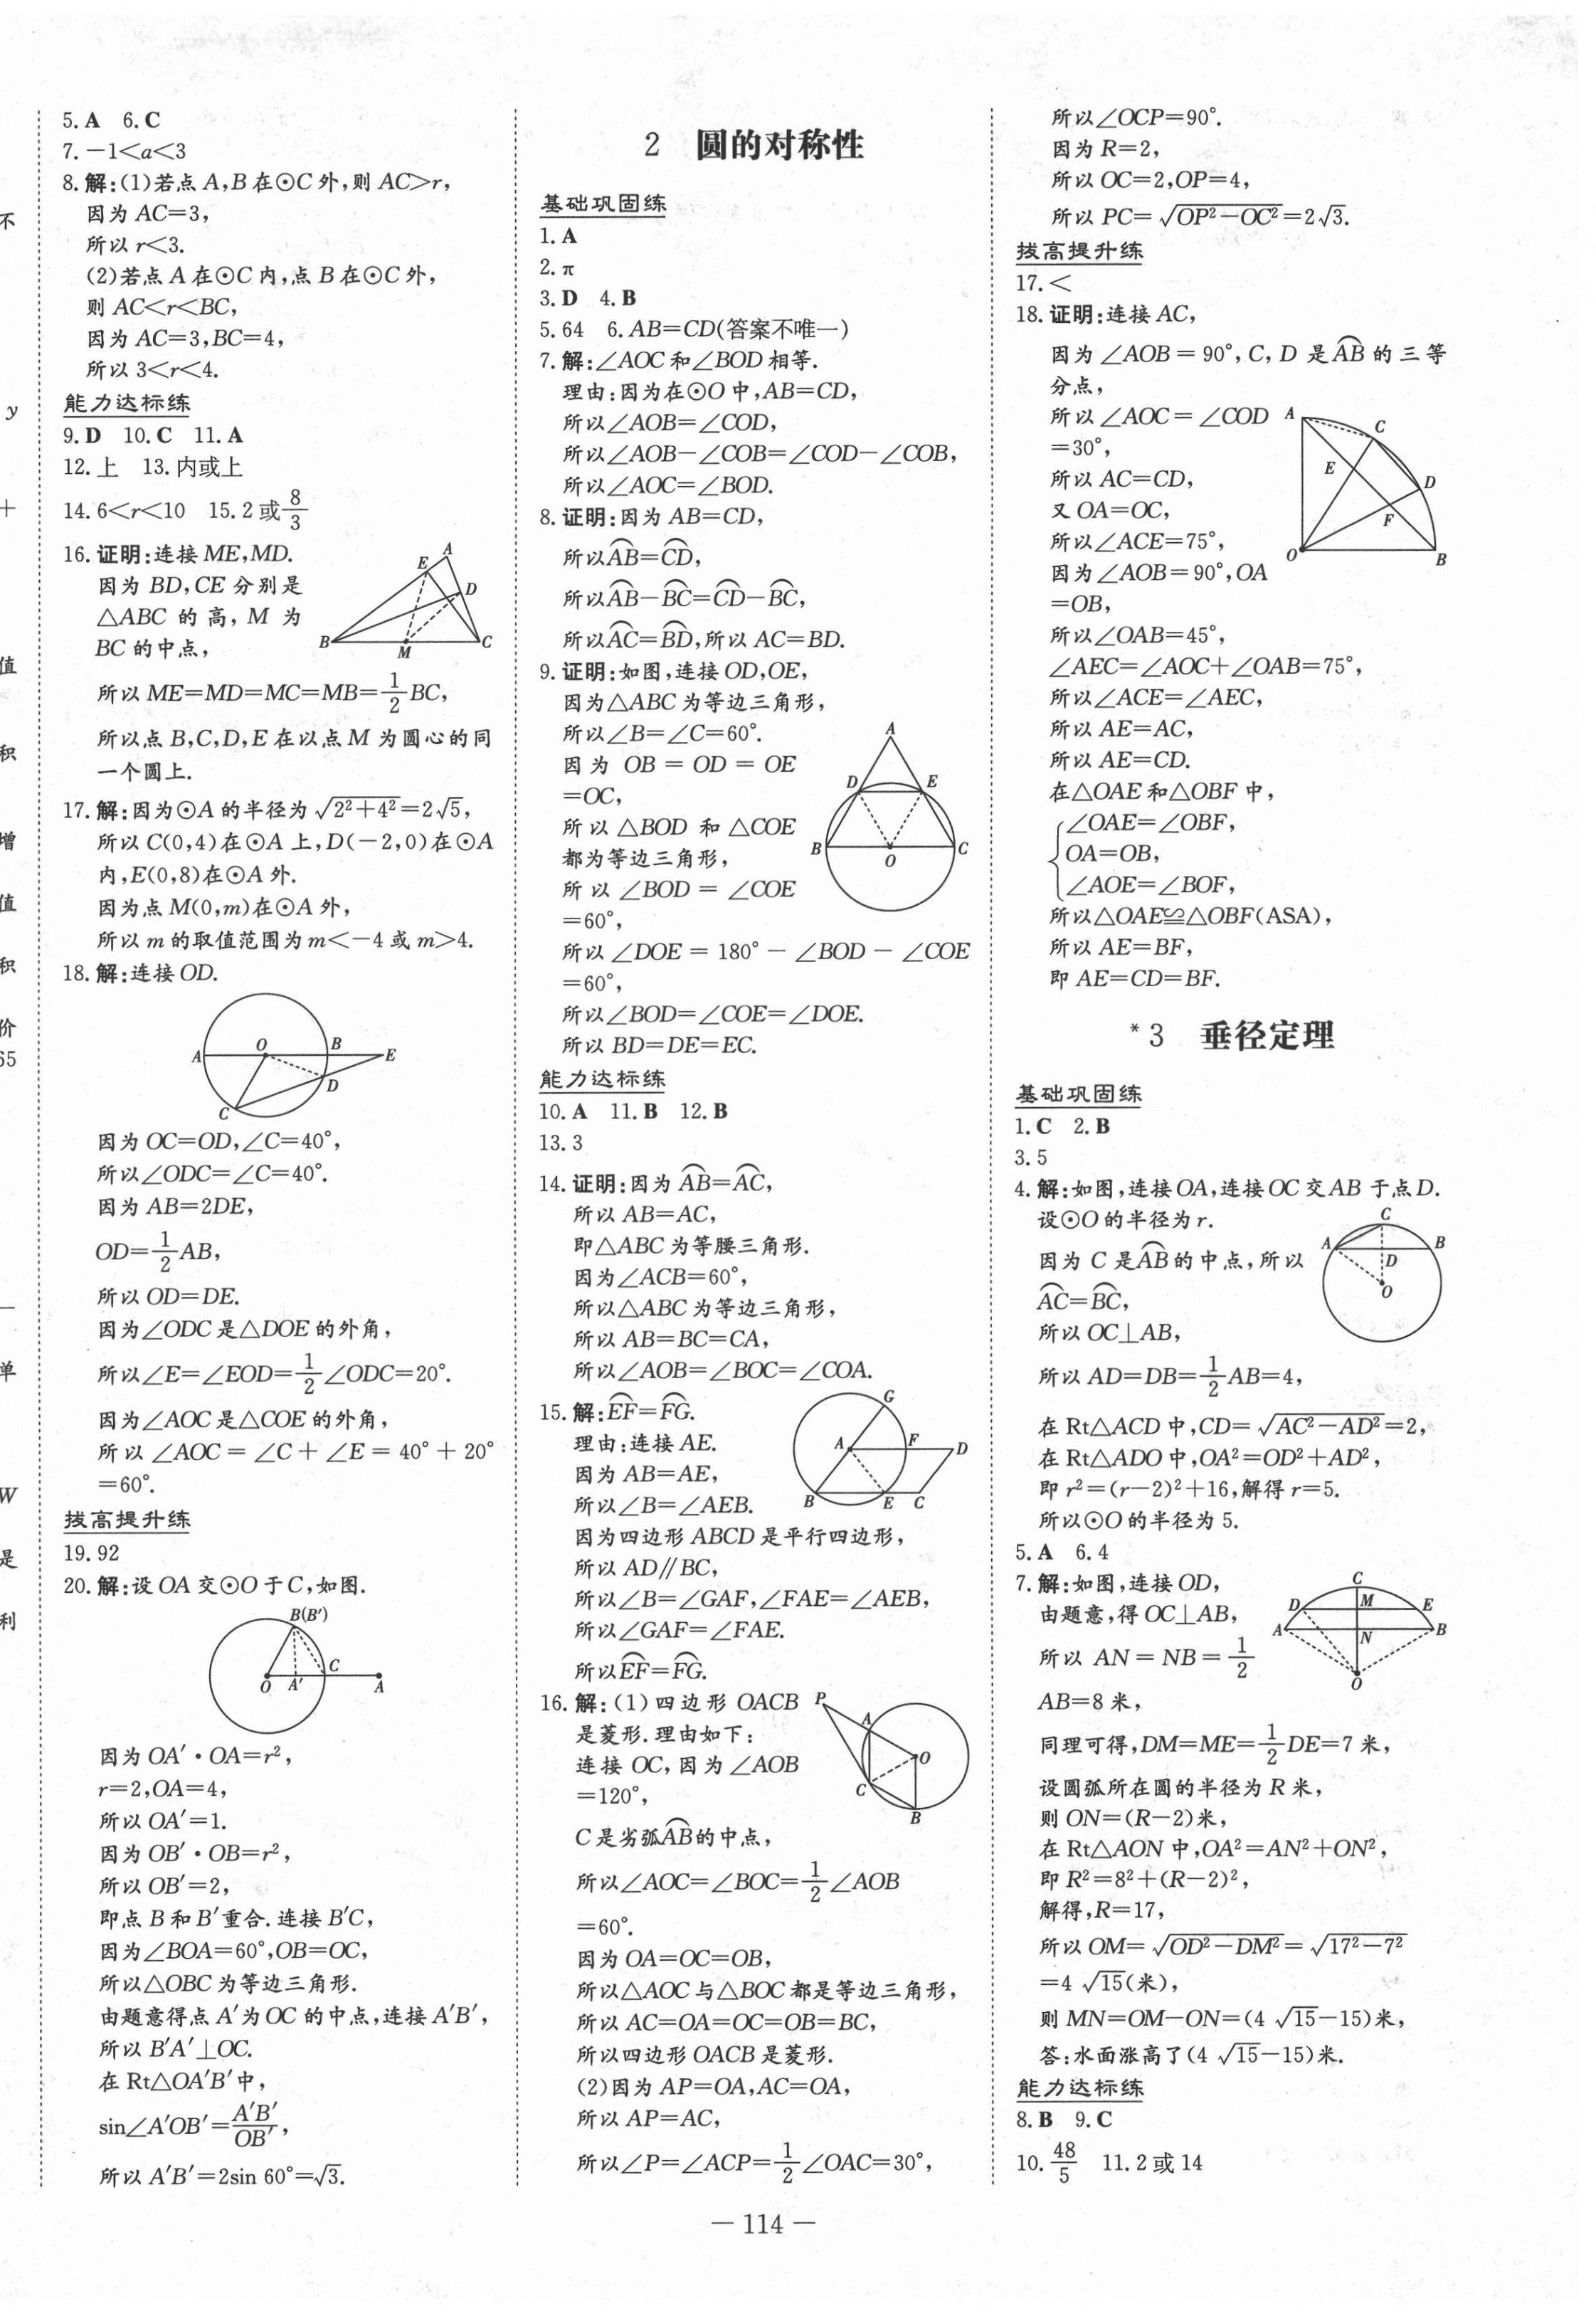 5.A 6.C
7.-1<a<3
8.解:(1)若点A,B在⊙C外,则AC>r,
因为AC=3,
所以r<3.
(2)若点A在⊙C内,点B在⊙C外,
则AC<r<BC,
因为AC=3,BC=4,
所以3<r<4.
能力达标练
9.D 10.C 11.A
12.上 13.内或上
14.6<r<10 15.2或8/3
16.证明:连接ME,MD.
因为BD,CE分别是
△ABC的高,M为
BC的中点,
A
E
D
B
M
C
所以ME=MD=MC=MB=1/2BC,
所以点B,C,D,E在以点M为圆心的同
一个圆上.
17.解:因为⊙A的半径为√(2²+4²)=2√5,
所以C(0,4)在⊙A上,D(-2,0)在⊙A
内,E(0,8)在⊙A外.
因为点M(0,m)在⊙A外,
所以m的取值范围为m<-4或m>4.
18.解:连接OD.
A
O
B
E
D
C
因为OC=OD,∠C=40°,
所以∠ODC=∠C=40°.
因为AB=2DE,
OD=1/2AB,
所以OD=DE.
因为∠ODC是△DOE的外角,
所以∠E=∠EOD=1/2∠ODC=20°.
因为∠AOC是△COE的外角,
所以∠AOC=∠C+∠E=40°+20°
=60°.
拔高提升练
19.92
20.解:设OA交⊙O于C,如图.
B(B′)
C
O
A′
A
因为OA′·OA=r²,
r=2,OA=4,
所以OA′=1.
因为OB′·OB=r²,
所以OB′=2,
即点B和B′重合.连接B′C,
因为∠BOA=60°,OB=OC,
所以△OBC为等边三角形.
由题意得点A′为OC的中点,连接A′B′,
所以B′A′⊥OC.
在Rt△OA′B′中,
sin∠A′OB′=A′B′/OB′,
所以A′B′=2sin 60°=√3.
2 圆的对称性
基础巩固练
1.A
2.π
3.D 4.B
5.64 6.AB=CD(答案不唯一)
7.解:∠AOC和∠BOD相等.
理由:因为在⊙O中,AB=CD,
所以∠AOB=∠COD,
所以∠AOB-∠COB=∠COD-∠COB,
所以∠AOC=∠BOD.
8.证明:因为AB=CD,
所以⌒AB=⌒CD,
所以⌒AB-⌒BC=⌒CD-⌒BC,
所以⌒AC=⌒BD,所以AC=BD.
9.证明:如图,连接OD,OE,
因为△ABC为等边三角形,
所以∠B=∠C=60°.
因为OB=OD=OE
=OC,
所以△BOD和△COE
都为等边三角形,
所以∠BOD=∠COE
=60°,
A
D
E
B
O
C
所以∠DOE=180°-∠BOD-∠COE
=60°,
所以∠BOD=∠COE=∠DOE.
所以BD=DE=EC.
能力达标练
10.A 11.B 12.B
13.3
14.证明:因为⌒AB=⌒AC,
所以AB=AC,
即△ABC为等腰三角形.
因为∠ACB=60°,
所以△ABC为等边三角形,
所以AB=BC=CA,
所以∠AOB=∠BOC=∠COA.
15.解:⌒EF=⌒FG.
理由:连接AE.
因为AB=AE,
所以∠B=∠AEB.
G
A
F
D
B
E
C
因为四边形ABCD是平行四边形,
所以AD∥BC,
所以∠B=∠GAF,∠FAE=∠AEB,
所以∠GAF=∠FAE.
所以⌒EF=⌒FG.
16.解:(1)四边形OACB
是菱形.理由如下:
连接OC,因为∠AOB
=120°,
P
A
O
C
B
C是劣弧⌒AB的中点,
所以∠AOC=∠BOC=1/2∠AOB
=60°.
因为OA=OC=OB,
所以△AOC与△BOC都是等边三角形,
所以AC=OA=OC=OB=BC,
所以四边形OACB是菱形.
(2)因为AP=OA,AC=OA,
所以AP=AC,
所以∠P=∠ACP=1/2∠OAC=30°,
所以∠OCP=90°.
因为R=2,
所以OC=2,OP=4,
所以PC=√(OP²-OC²)=2√3.
拔高提升练
17.<
18.证明:连接AC,
因为∠AOB=90°,C,D是⌒AB的三等
分点,
所以∠AOC=∠COD
=30°,
所以AC=CD,
又OA=OC,
所以∠ACE=75°,
因为∠AOB=90°,OA
=OB,
A
C
E
D
F
O
B
所以∠OAB=45°,
∠AEC=∠AOC+∠OAB=75°,
所以∠ACE=∠AEC,
所以AE=AC,
所以AE=CD.
在△OAE和△OBF中,
∠OAE=∠OBF,
OA=OB,
∠AOE=∠BOF,
所以△OAE≌△OBF(ASA),
所以AE=BF,
即AE=CD=BF.
*3 垂径定理
基础巩固练
1.C 2.B
3.5
4.解:如图,连接OA,连接OC交AB于点D.
设⊙O的半径为r.
因为C是⌒AB的中点,所以
⌒AC=⌒BC,
所以OC⊥AB,
C
A
B
D
O
所以AD=DB=1/2AB=4,
在Rt△ACD中,CD=√(AC²-AD²)=2,
在Rt△ADO中,OA²=OD²+AD²,
即r²=(r-2)²+16,解得r=5.
所以⊙O的半径为5.
5.A 6.4
7.解:如图,连接OD,
由题意,得OC⊥AB,
所以AN=NB=1/2
AB=8米,
C
D
M
E
A
N
B
O
同理可得,DM=ME=1/2DE=7米,
设圆弧所在圆的半径为R米,
则ON=(R-2)米,
在Rt△AON中,OA²=AN²+ON²,
即R²=8²+(R-2)²,
解得,R=17,
所以OM=√(OD²-DM²)=√(17²-7²)
=4√15(米),
则MN=OM-ON=(4√15-15)米,
答:水面涨高了(4√15-15)米.
能力达标练
8.B 9.C
10.48/5 11.2或14
— 114 —
不
y
+
值
积
增
值
积
价
65
单
W
是
利